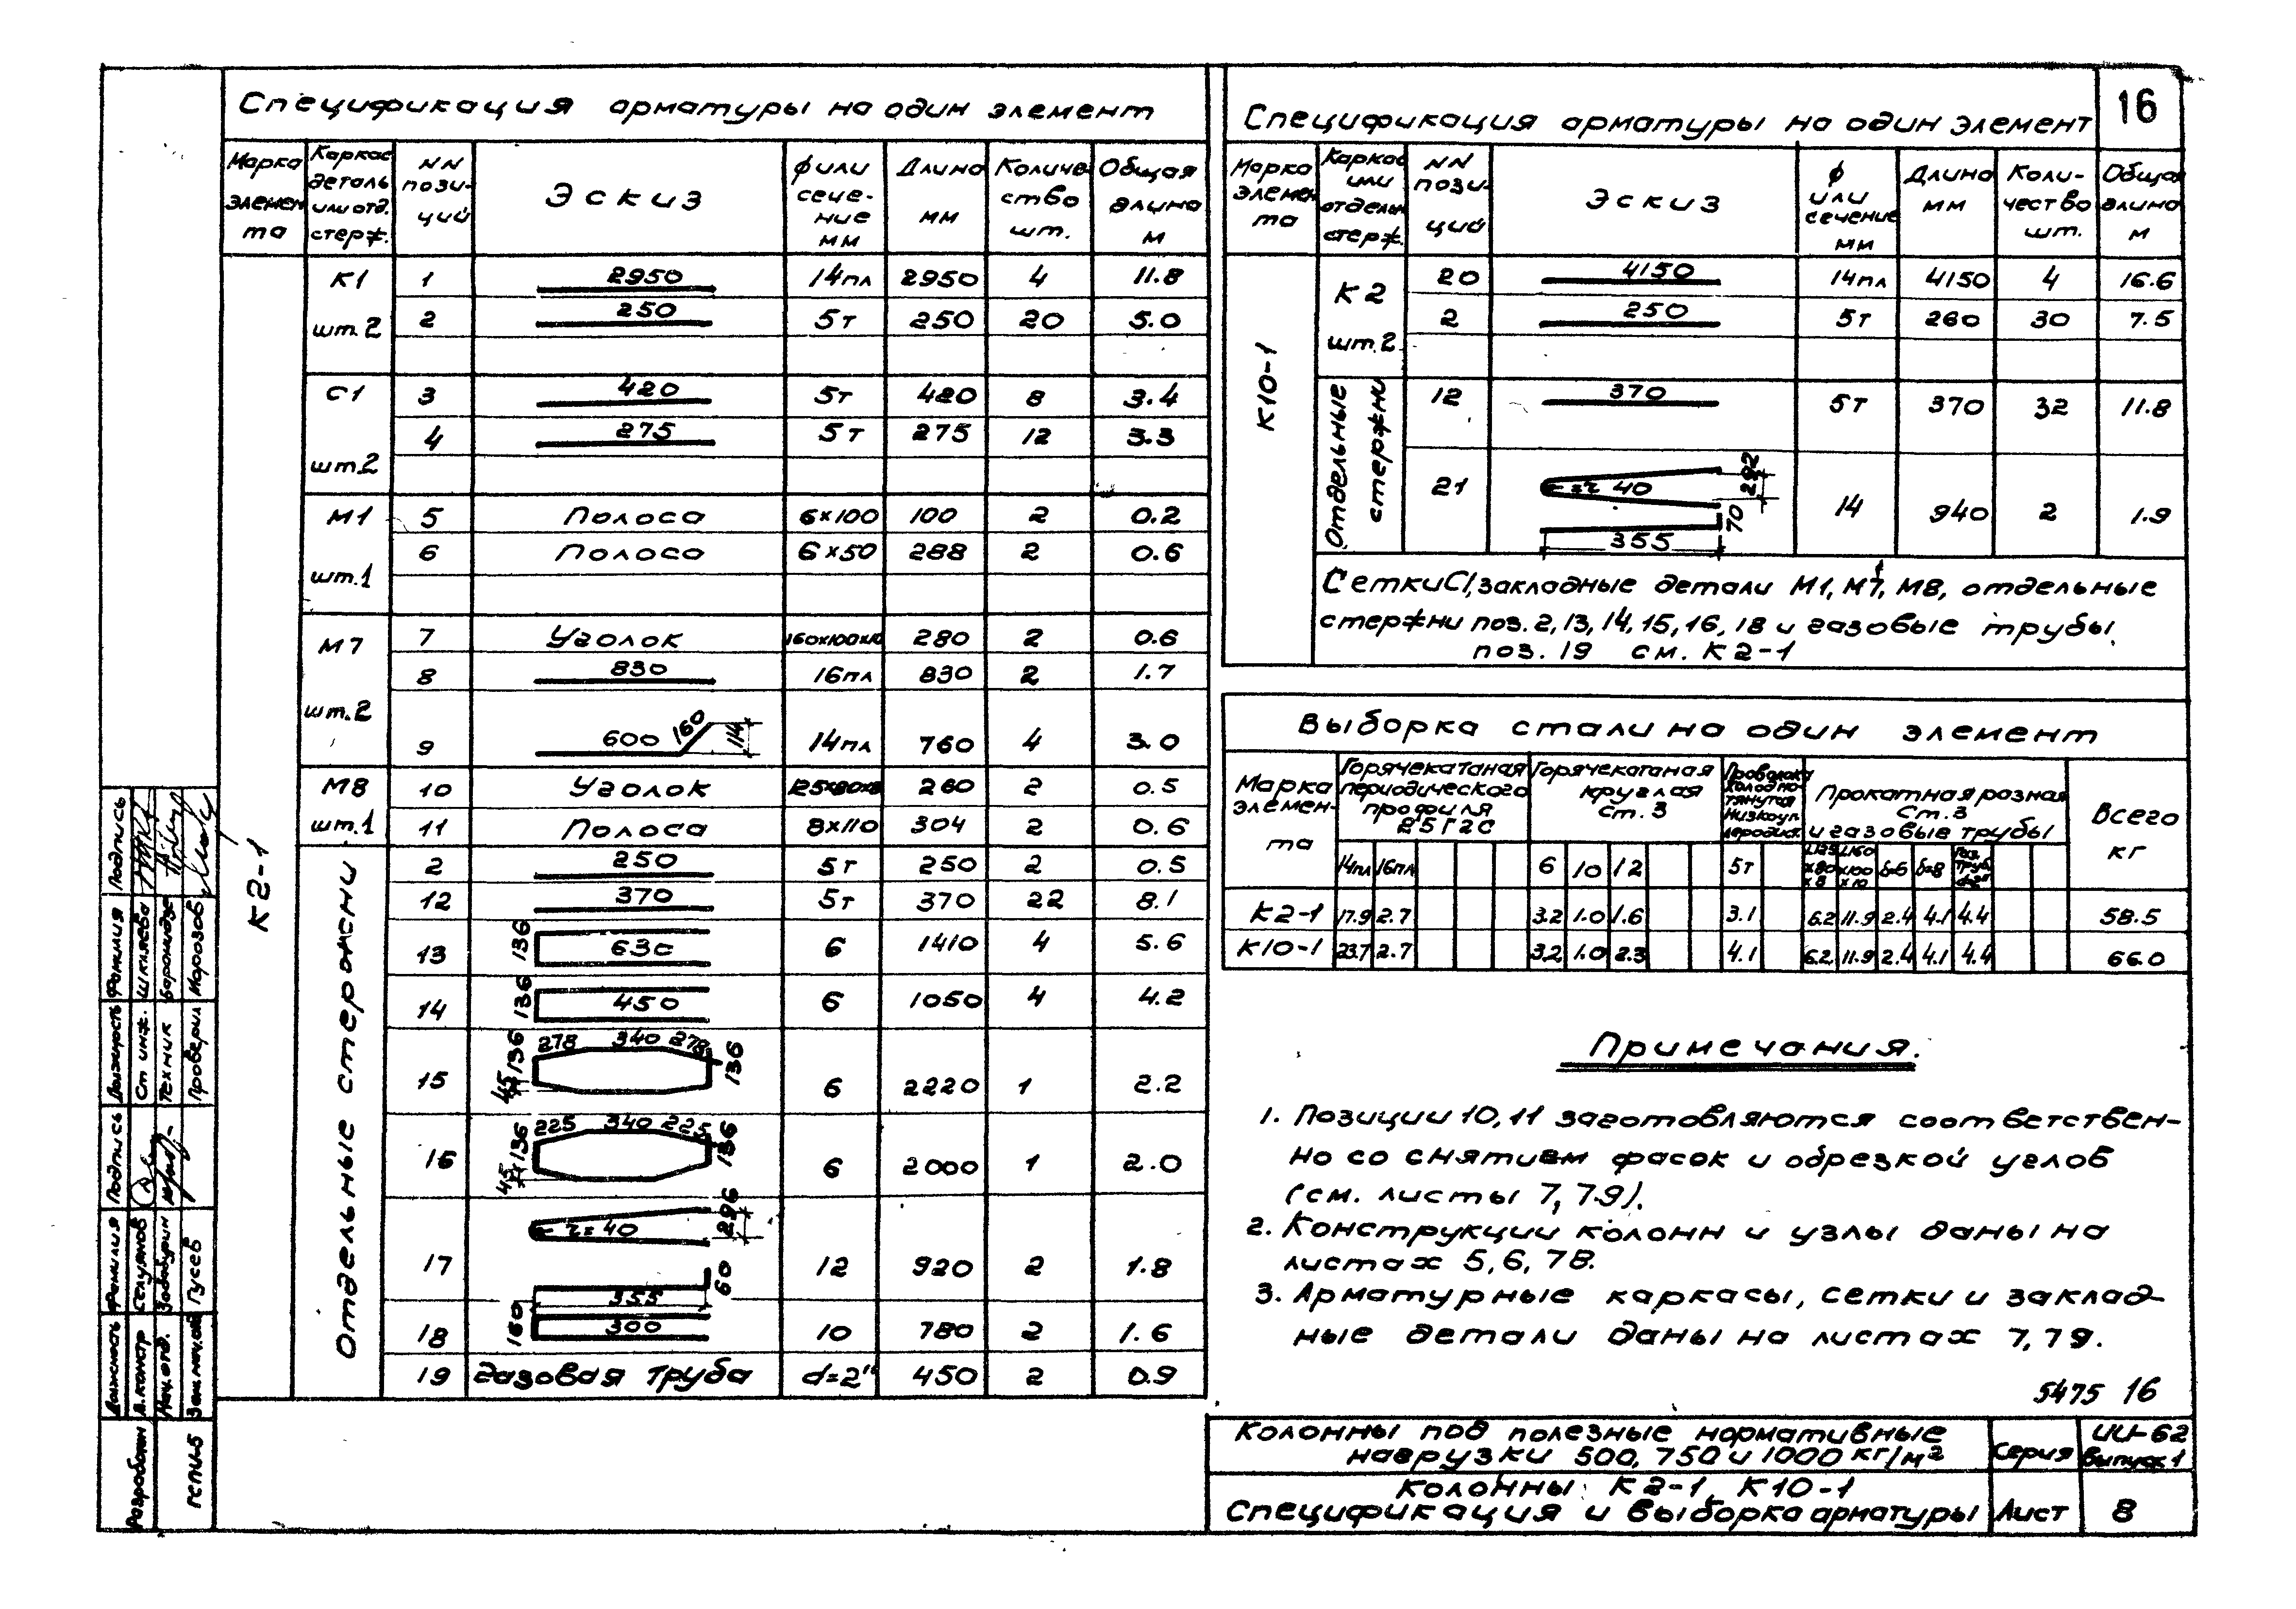 16
Спецификация арматуры на один элемент
Марка элемента | Каркас деталь или отд. стерж. | NN позиций | Эскиз | ф или сечение мм | Длина мм | Количество шт. | Общая длина м
К2-1
К1 шт.2 | 1 | 2950 | 14пл | 2950 | 4 | 11.8
2 | 250 | 5т | 250 | 20 | 5.0
С1 шт.2 | 3 | 420 | 5т | 420 | 8 | 3.4
4 | 275 | 5т | 275 | 12 | 3.3
М1 шт.1 | 5 | Полоса | 6×100 | 100 | 2 | 0.2
6 | Полоса | 6×50 | 288 | 2 | 0.6
М7 шт.2 | 7 | Уголок | 160х100х10 | 280 | 2 | 0.6
8 | 830 | 16пл | 830 | 2 | 1.7
9 | 600 160 114 | 14пл | 760 | 4 | 3.0
М8 шт.1 | 10 | Уголок | 125х80х8 | 260 | 2 | 0.5
11 | Полоса | 8×110 | 304 | 2 | 0.6
Отдельные стержни
2 | 250 | 5т | 250 | 2 | 0.5
12 | 370 | 5т | 370 | 22 | 8.1
13 | 136 630 | 6 | 1410 | 4 | 5.6
14 | 136 450 | 6 | 1050 | 4 | 4.2
15 | 45 136 278 340 278 136 | 6 | 2220 | 1 | 2.2
16 | 45 136 225 340 225 136 | 6 | 2000 | 1 | 2.0
17 | r=40 296 60 355 | 12 | 920 | 2 | 1.8
18 | 160 300 | 10 | 780 | 2 | 1.6
19 | газовая труба | d=2" | 450 | 2 | 0.9
Спецификация арматуры на один элемент
Марка элемента | Каркас или отдельн. стерж. | NN позиций | Эскиз | ф или сечение мм | Длина мм | Количество шт. | Общая длина м
К10-1
К2 шт.2 | 20 | 4150 | 14пл | 4150 | 4 | 16.6
2 | 250 | 5т | 260 | 30 | 7.5
Отдельные стержни
12 | 370 | 5т | 370 | 32 | 11.8
21 | r=40 292 70 355 | 14 | 940 | 2 | 1.9
Сетки С1, закладные детали М1, М7, М8, отдельные
стержни поз. 2, 13, 14, 15, 16, 18 и газовые трубы
поз. 19 см. К2-1
Выборка стали на один элемент
Марка элемента | Горячекатаная периодического профиля 25Г2С | Горячекатаная круглая Ст. 3 | Проволока холоднотянутая низкоуглеродист. | Прокатная разная Ст. 3 и газовые трубы | Всего кг
14пл | 16пл | 6 | 10 | 12 | 5т | L125х80х8 | L160х100х10 | δ=6 | δ=8 | Газ. труб. d=2"
К2-1 | 17.9 | 2.7 | 3.2 | 1.0 | 1.6 | 3.1 | 6.2 | 11.9 | 2.4 | 4.1 | 4.4 | 58.5
К10-1 | 23.7 | 2.7 | 3.2 | 1.0 | 2.3 | 4.1 | 6.2 | 11.9 | 2.4 | 4.1 | 4.4 | 66.0
Примечания.
1. Позиции 10, 11 заготовляются соответствен-
но со снятием фасок и обрезкой углов
(см. листы 7, 79).
2. Конструкции колонн и узлы даны на
листах 5, 6, 78.
3. Арматурные каркасы, сетки и заклад-
ные детали даны на листах 7, 79.
5475 16
Колонны под полезные нормативные
нагрузки 500, 750 и 1000 кг/м²
Серия
ИИ-62
Выпуск 1
Колонны К2-1, К10-1
Спецификация и выборка арматуры
Лист
8
Должность Фамилия Подпись Должность Фамилия Подпись
Гл. констр Селуянов Ст инж. Шкляева
Нач. отд. Техник
Гусев Проверил Морозов
Разработан